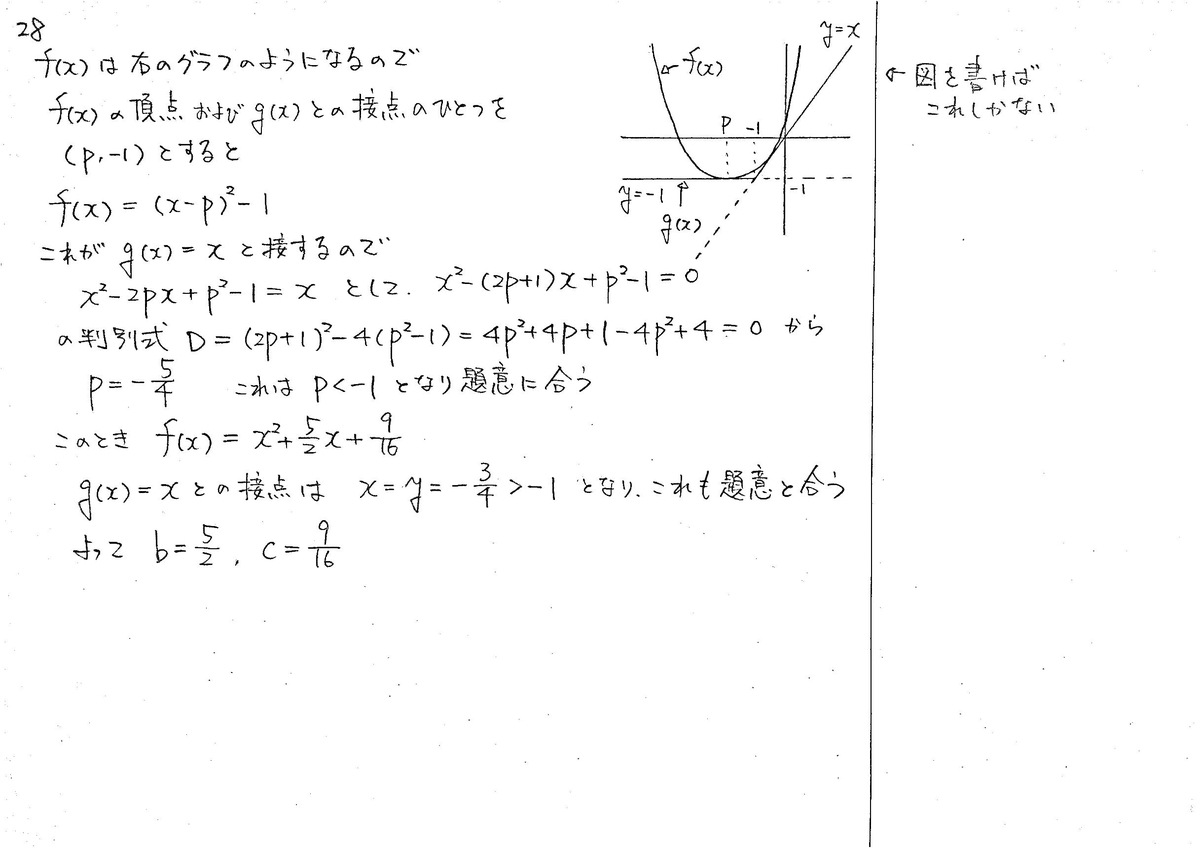 28
f(x)は右のグラフのようになるので
f(x)の頂点およびg(x)との接点のひとつを
(p, -1)とすると
f(x) = (x-p)² - 1
これが g(x) = x と接するので
x² - 2px + p² - 1 = x として. x² - (2p+1)x + p² - 1 = 0
の判別式 D = (2p+1)² - 4(p²-1) = 4p² + 4p + 1 - 4p² + 4 = 0 から
p = -5/4 これは p < -1 となり題意に合う
このとき f(x) = x² + 5/2x + 9/16
g(x) = x との接点は x = y = -3/4 > -1 となり、これも題意と合う
よって b = 5/2, c = 9/16
y=x
f(x)
p -1
y=-1
-1
g(x)
← 図を書けば
これしかない